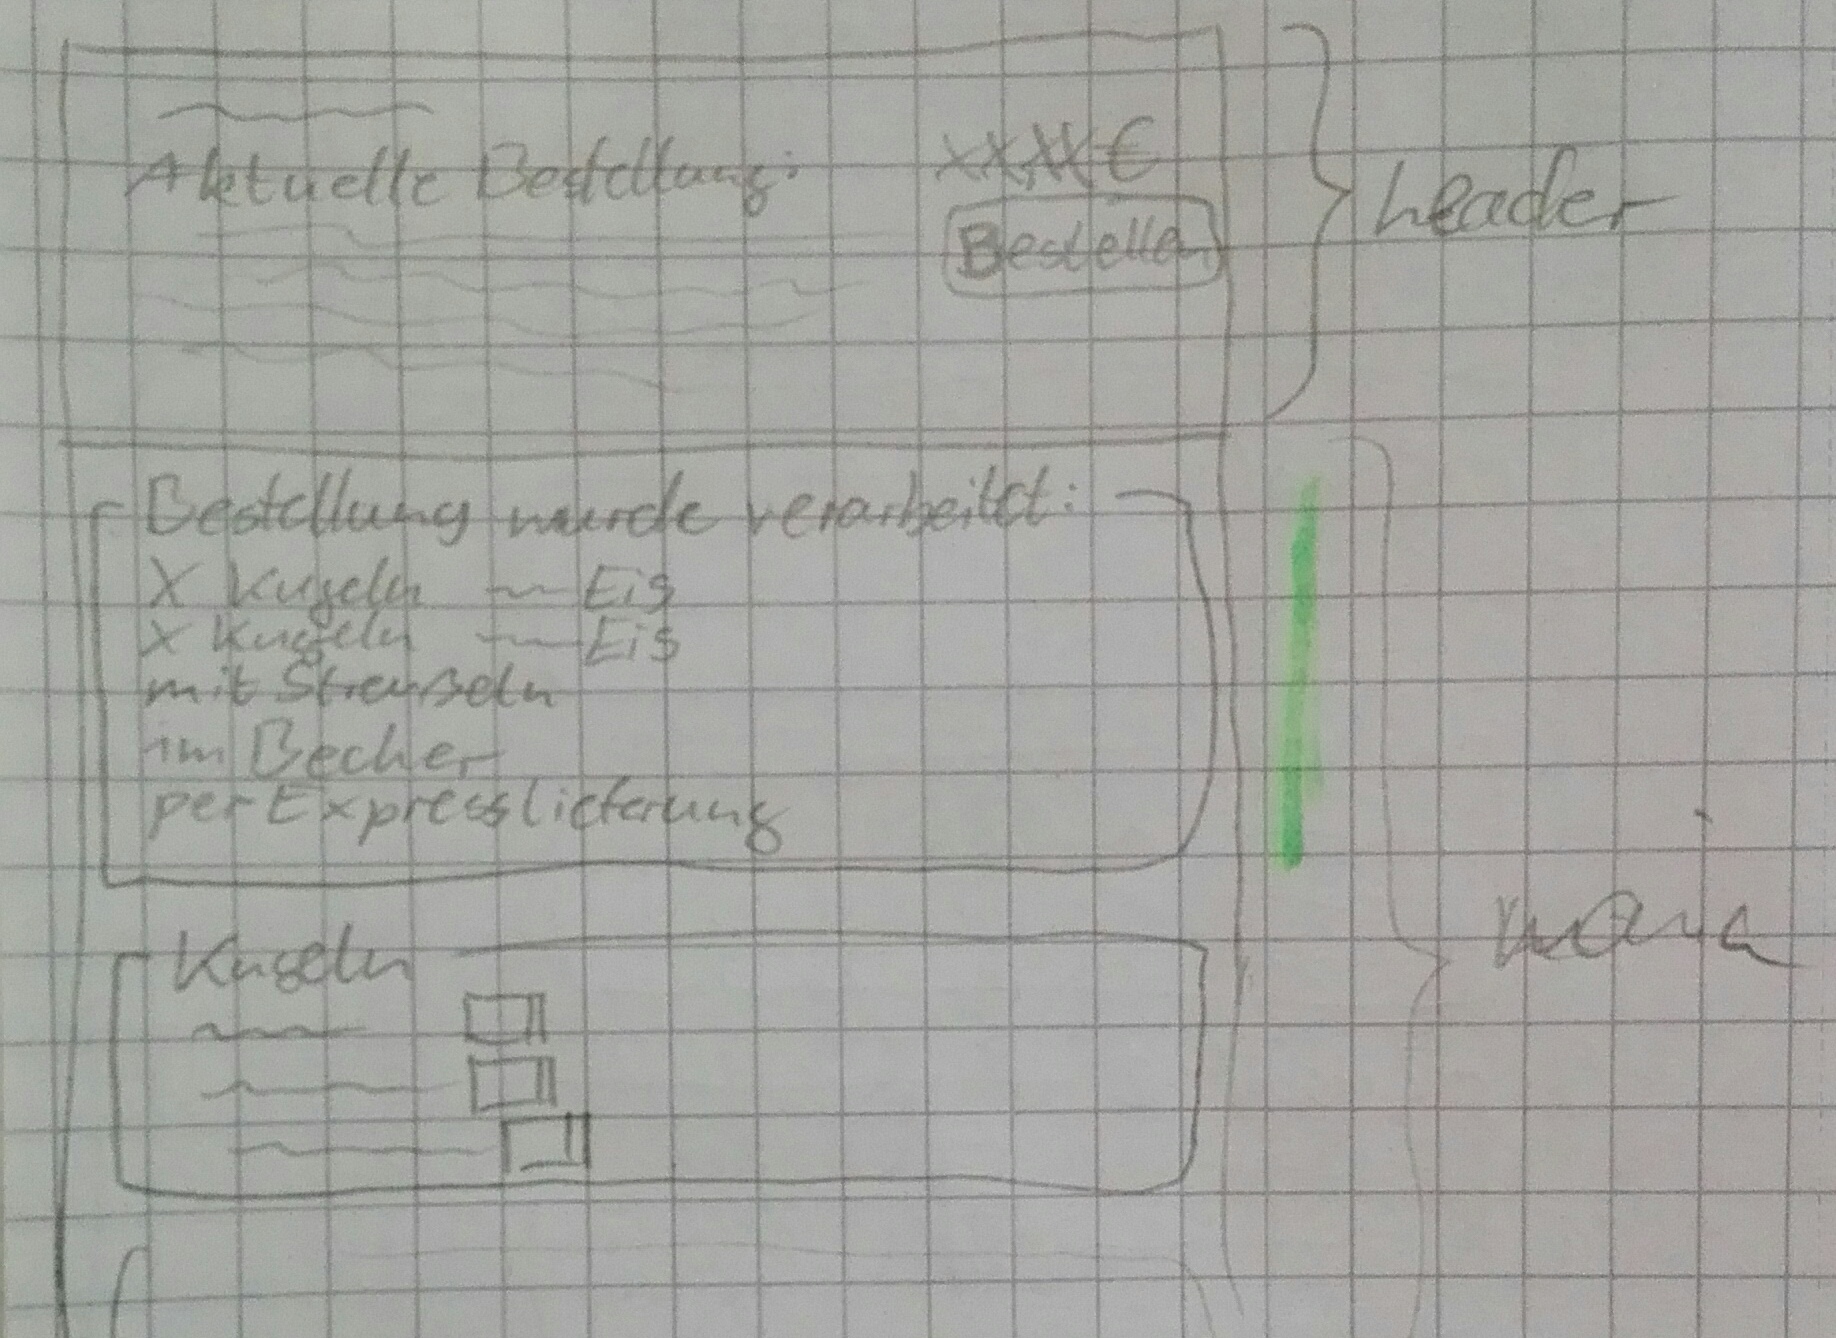 Aktuelle Bestellung:
xx,xx €
Bestellen
header
Bestellung wurde verarbeitet:
X Kugeln ~ Eis
X Kugeln ~ Eis
mit Streußeln
im Becher
per Expresslieferung
main
Kugeln